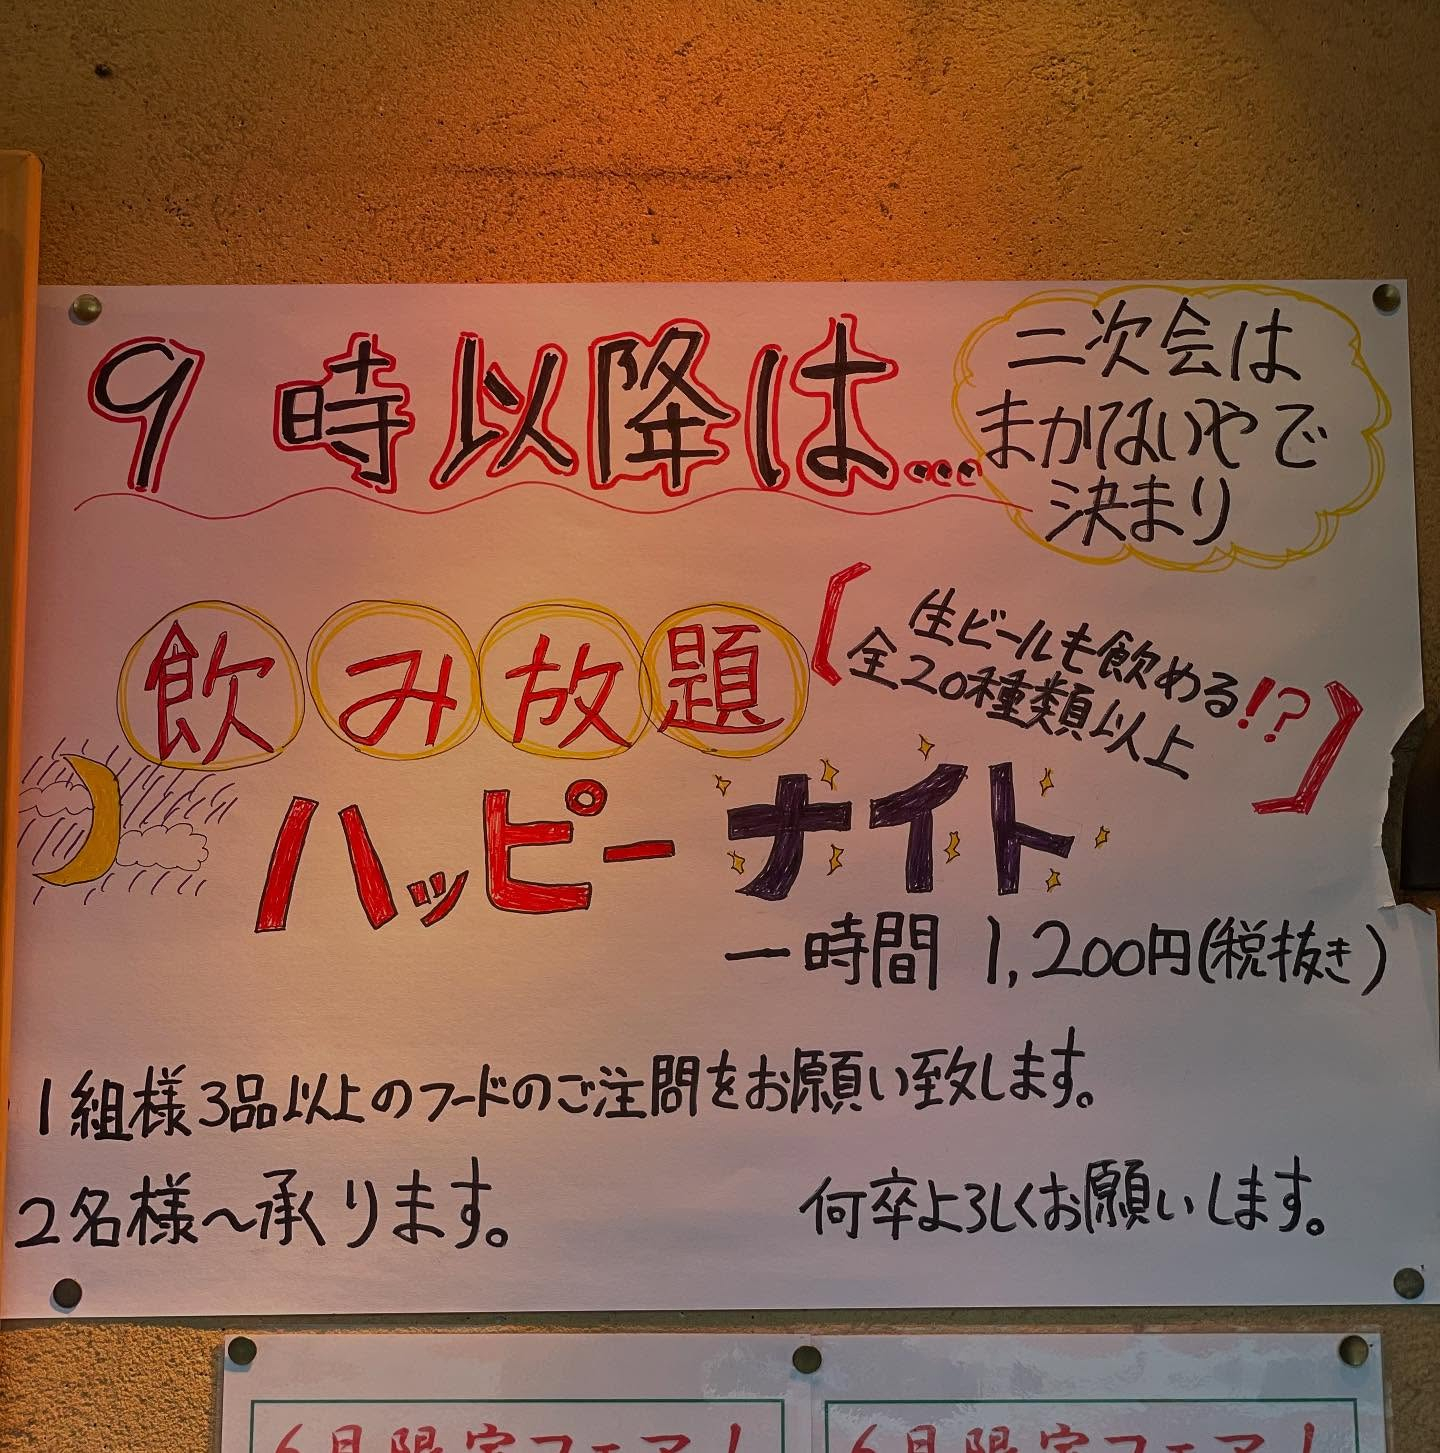 9時以降は...
二次会は
まかないやで
決まり
飲み放題
生ビールも飲める!?
全20種類以上
ハッピーナイト
一時間 1,200円(税抜き)
1組様3品以上のフードのご注問をお願い致します。
2名様〜承ります。
何卒よろしくお願いします。
6月限定フェア!
6月限定フェア!